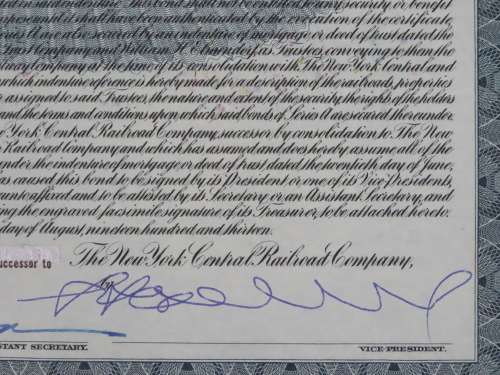 bond shall not become obligatory for any security or benefit
present shall have been authenticated by the execution of the certificate
Series A are also secured by an indenture of mortgage or deed of trust dated the
Trust Company and William H. as Trustees, conveying to them the
Railway Company at the time of its consolidation with The New York Central and
which indenture reference is hereby made for a description of the railroads, properties
assigned to said Trustees, the nature and extent of the security, the rights of the holders
and the terms and conditions upon which said bonds of Series A are secured thereunder.
York Central Railroad Company, successor by consolidation to The New
Railroad Company and which has assumed and does hereby assume all of the
under the indenture of mortgage or deed of trust, dated the twentieth day of June,
has caused this bond to be signed by its President or one of its Vice-Presidents,
countoaffixed and to be attested by its Secretary or an Assistant Secretary, and
ing the engraved facsimile signature of its Treasurer, to be attached hereto.
day of August, nineteen hundred and thirteen.
successor to The New York Central Railroad Company,
by
STANT SECRETARY. VICE-PRESIDENT.